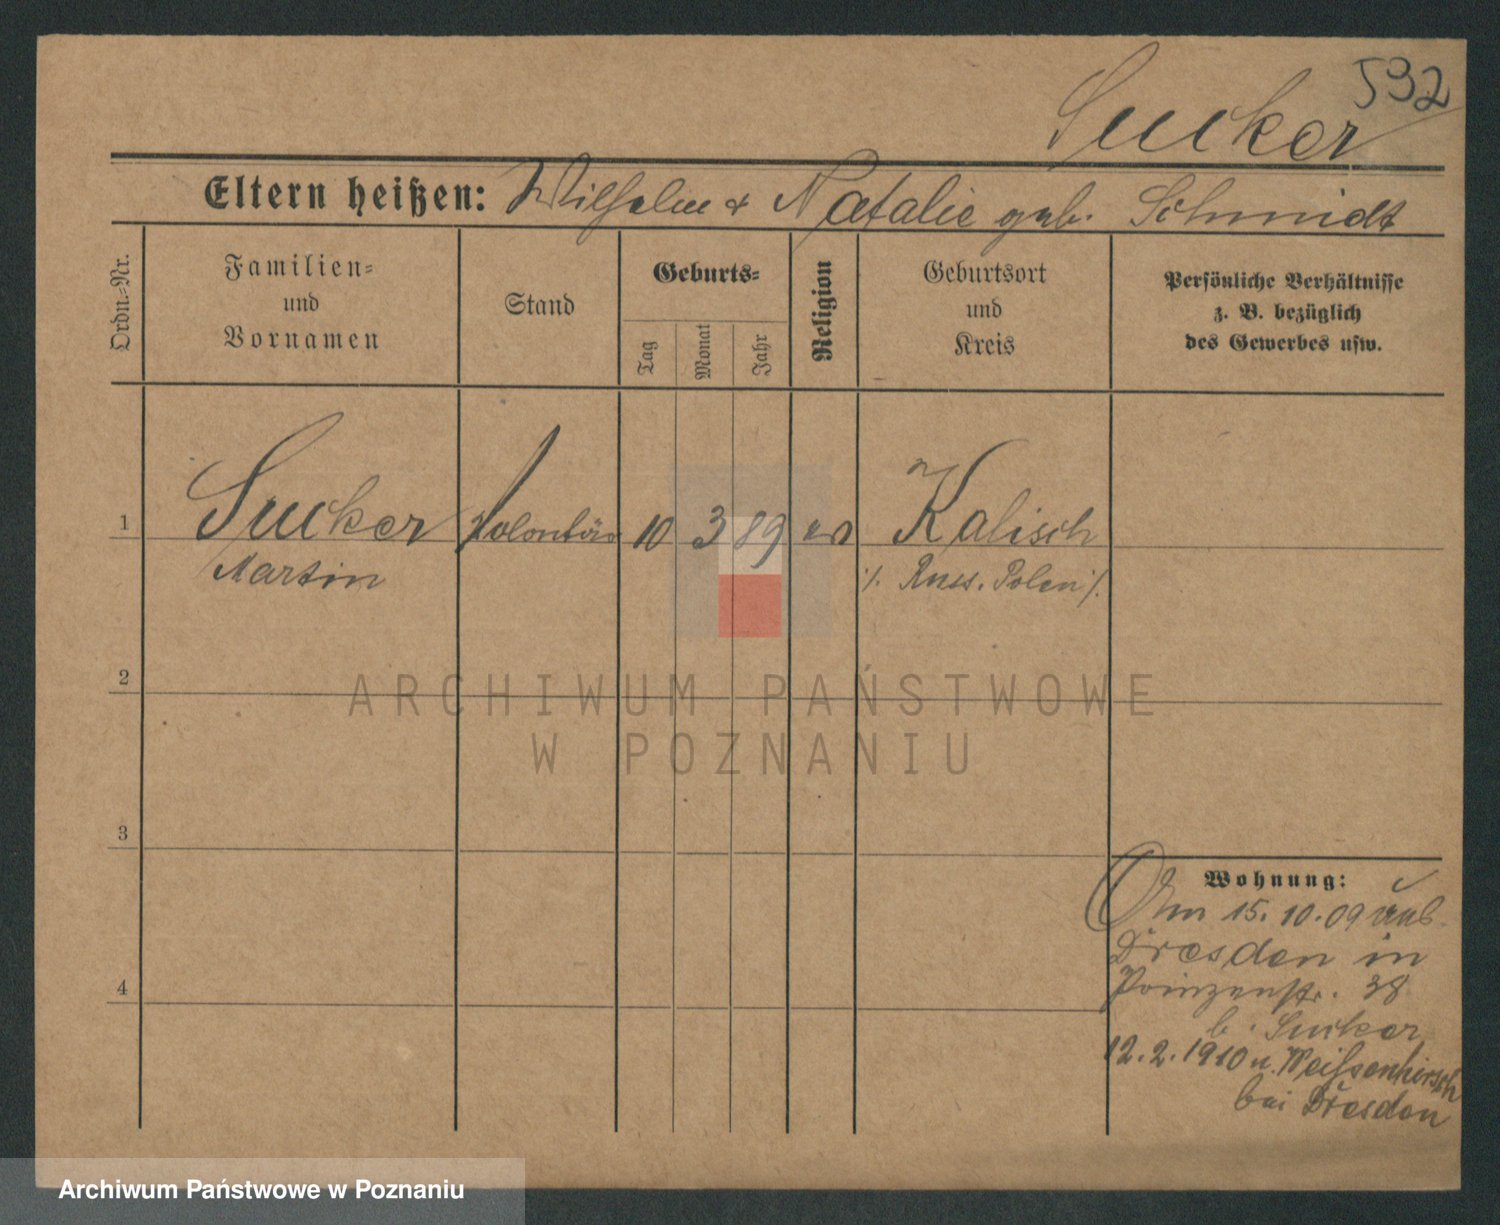 532
Sucker
Eltern heißen: Wilhelm & Natalie geb. Schmidt
Ordn.-Nr.
Familien-
und
Vornamen
Stand
Geburts-
Tag
Monat
Jahr
Religion
Geburtsort
und
Kreis
Persönliche Verhältnisse
z. B. bezüglich
des Gewerbes usw.
1 Sucker Volontär 10 3 89 ev Kalisch
Martin ·/. Russ. Polen ·/.
2
3
4
Wohnung:
Am 15. 10. 09 aus
Dresden in
Prinzenstr. 38
b. Sucker
12.2.1910 n. Weissenhirsch
bei Dresden
ARCHIWUM PAŃSTWOWE
W POZNANIU
Archiwum Państwowe w Poznaniu